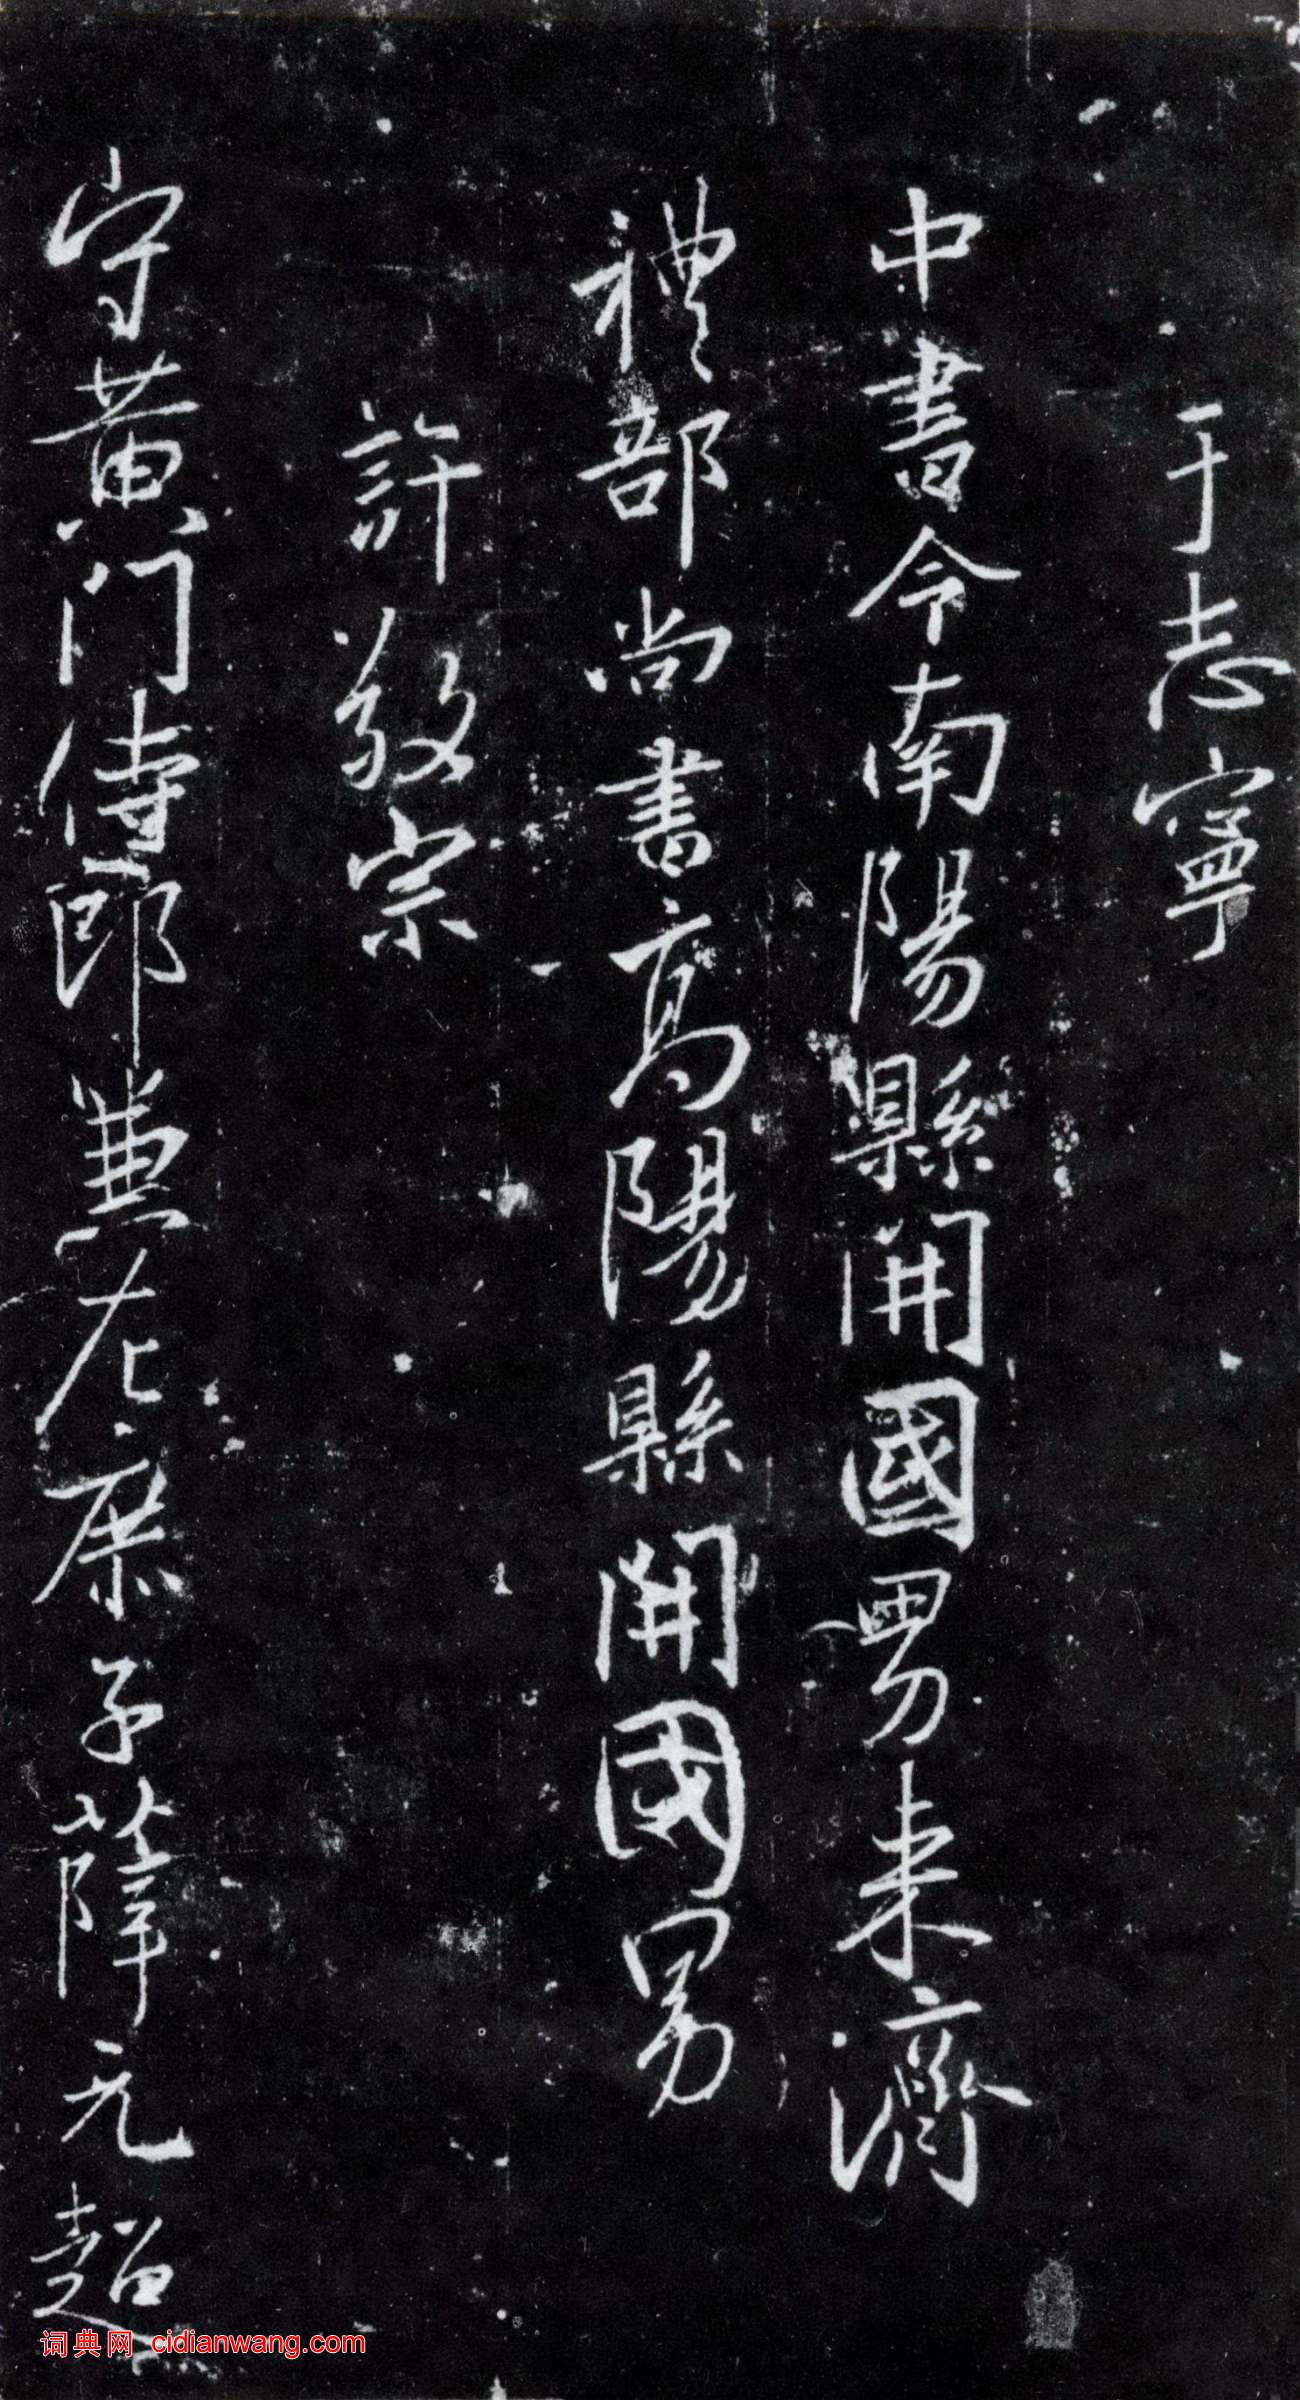 于志寧
中書令南陽縣開國男来濟
禮部尚書高陽縣開國男
許敬宗
守黄門侍郎兼左庶子薛元超
词典网 cidianwang.com